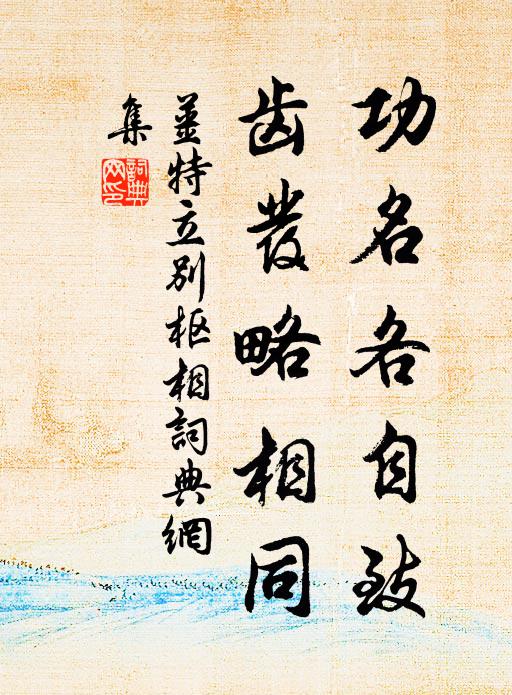 功名各自致
齿發略相同
姜特立別枢相詞典網
集
詞典
网印